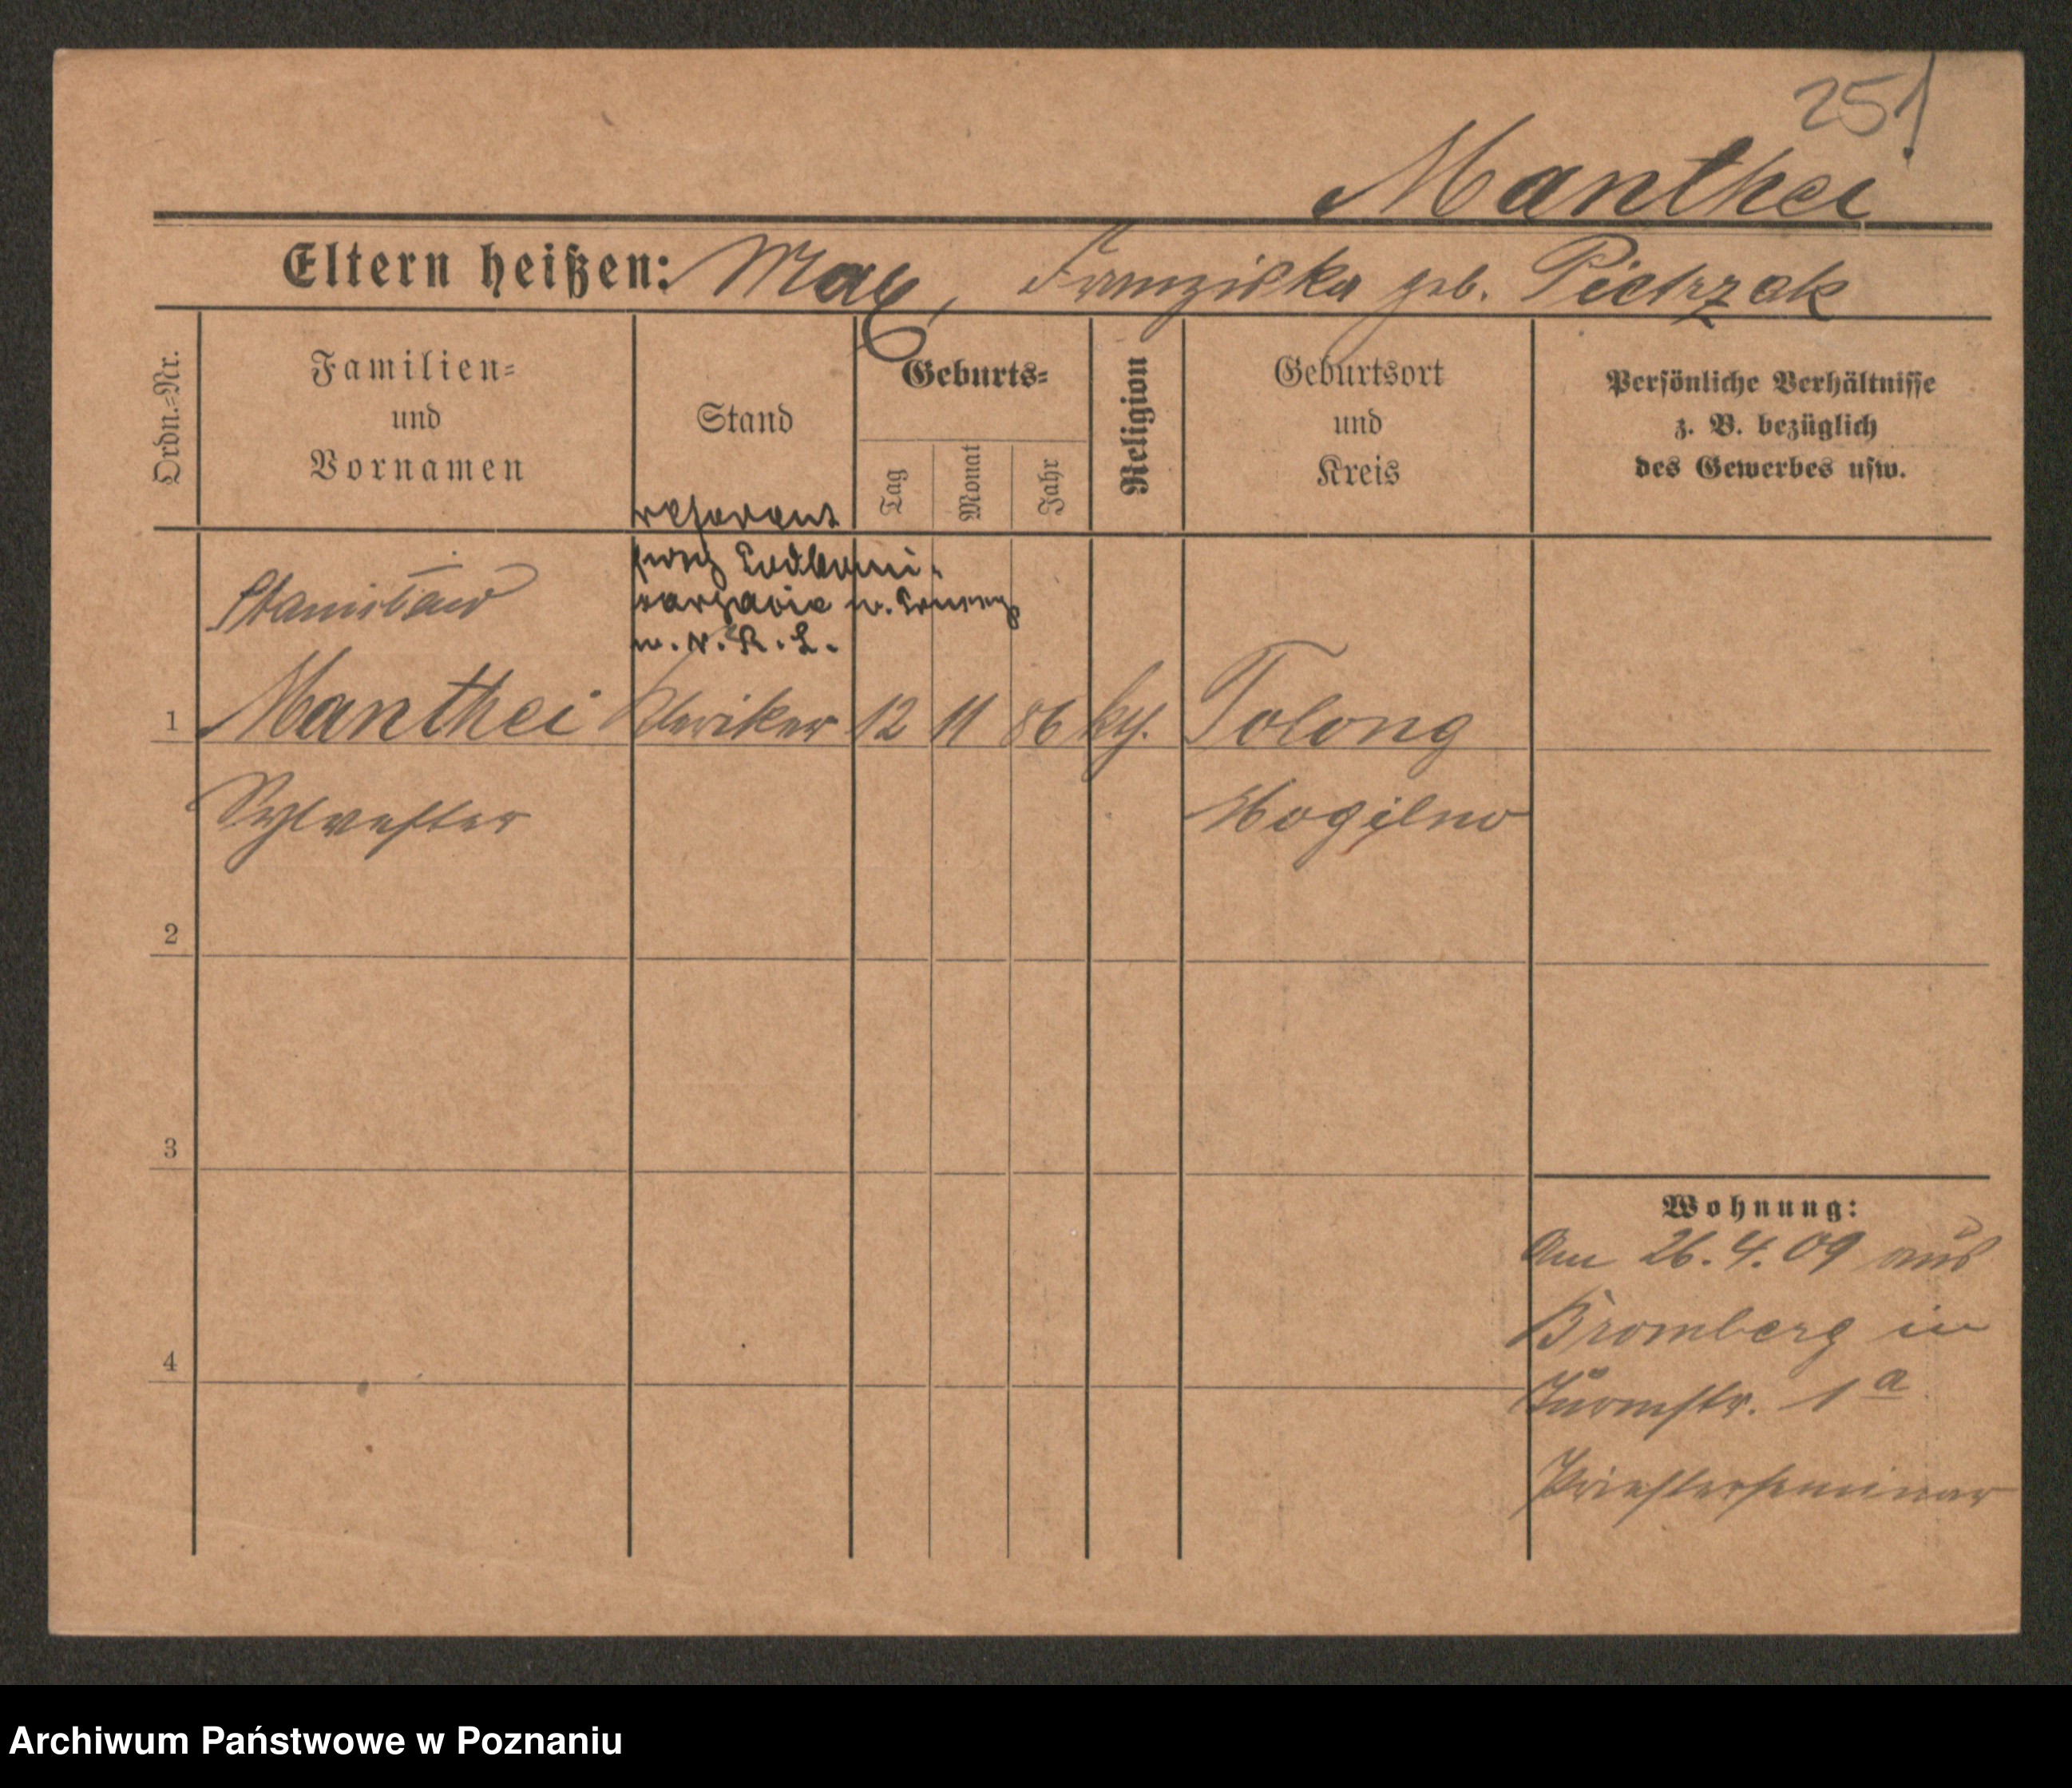 251
Manthei
Eltern heißen: Max, Franziska geb. Pietrzak
Ordn.=Nr.
Familien=
und
Vornamen
Stand
Geburts=
Tag
Monat
Jahr
Religion
Geburtsort
und
Kreis
Persönliche Verhältnisse
z. B. bezüglich
des Gewerbes usw.
referent
przy Podkomi-
sarjacie
w. N. R. L.
Stanisław
1 Manthei Kleriker 12 11 86 kth. Tolong
Sylvester Mogilno
2
3
4
Wohnung:
Am 26.4.09 aus
Bromberg in
Turmstr. 1a
Priesterseminar
Archiwum Państwowe w Poznaniu